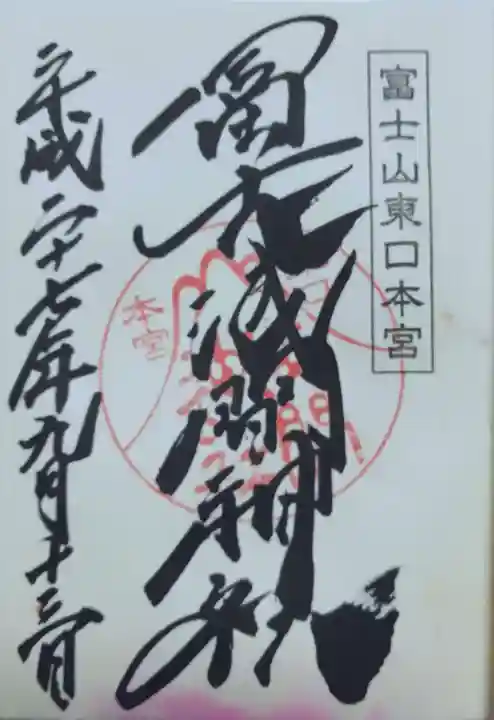 富士山東口本宮
冨士浅間神社
本宮
平成二十七年九月十三日